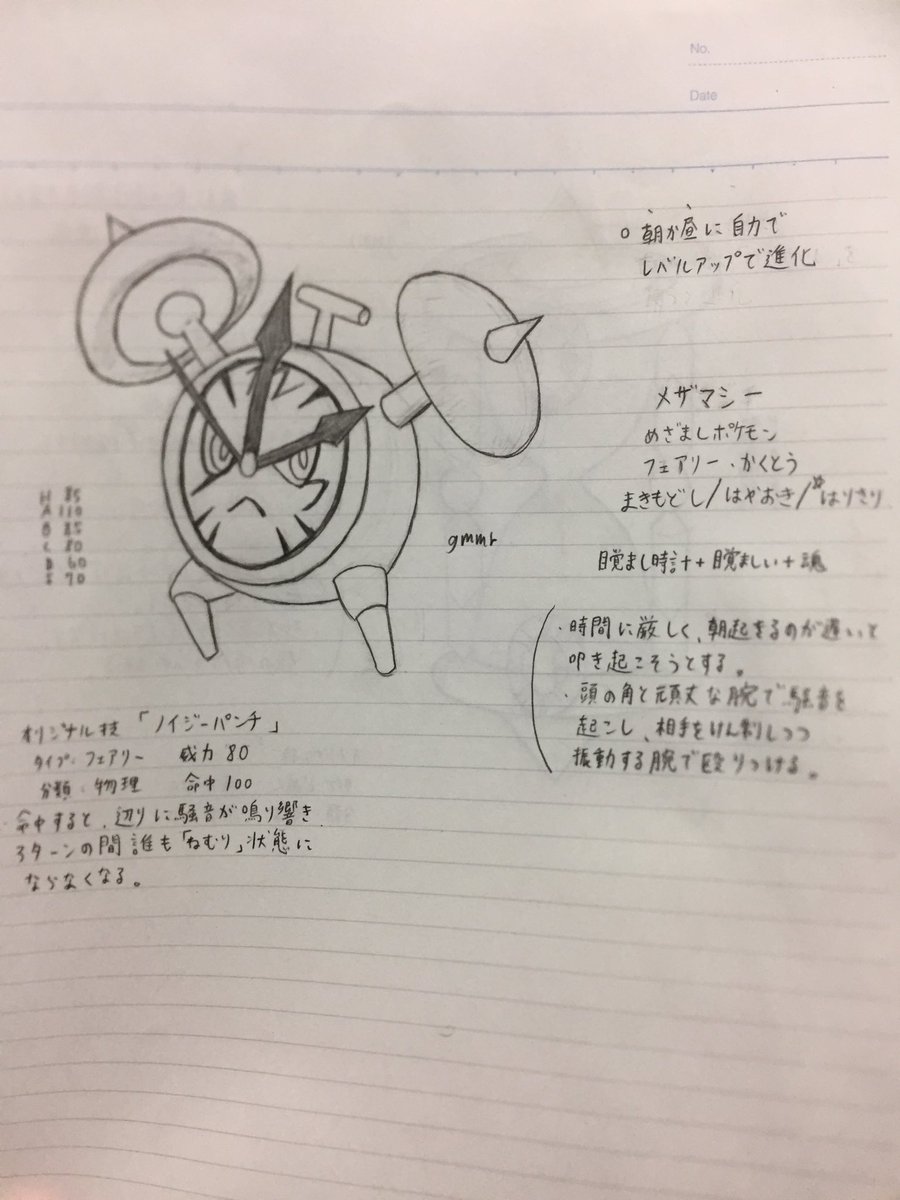 No.
Date
○ 朝か昼に自力で
レベルアップで進化
メザマシー
めざましポケモン
フェアリー・かくとう
まきもどし/はやおき/☆はりきり
目覚まし時計+目覚ましい+魂
H 85
A 110
B 85
C 80
D 60
S 70
gmmr
・時間に厳しく、朝起きるのが遅いと
叩き起こそうとする。
・頭の角と頑丈な腕で騒音を
起こし、相手をけん制しつつ
振動する腕で殴りつける。
オリジナル技 「ノイジーパンチ」
タイプ:フェアリー 威力 80
分類:物理 命中 100
・命中すると、辺りに騒音が鳴り響き
3ターンの間 誰も「ねむり」状態に
ならなくなる。